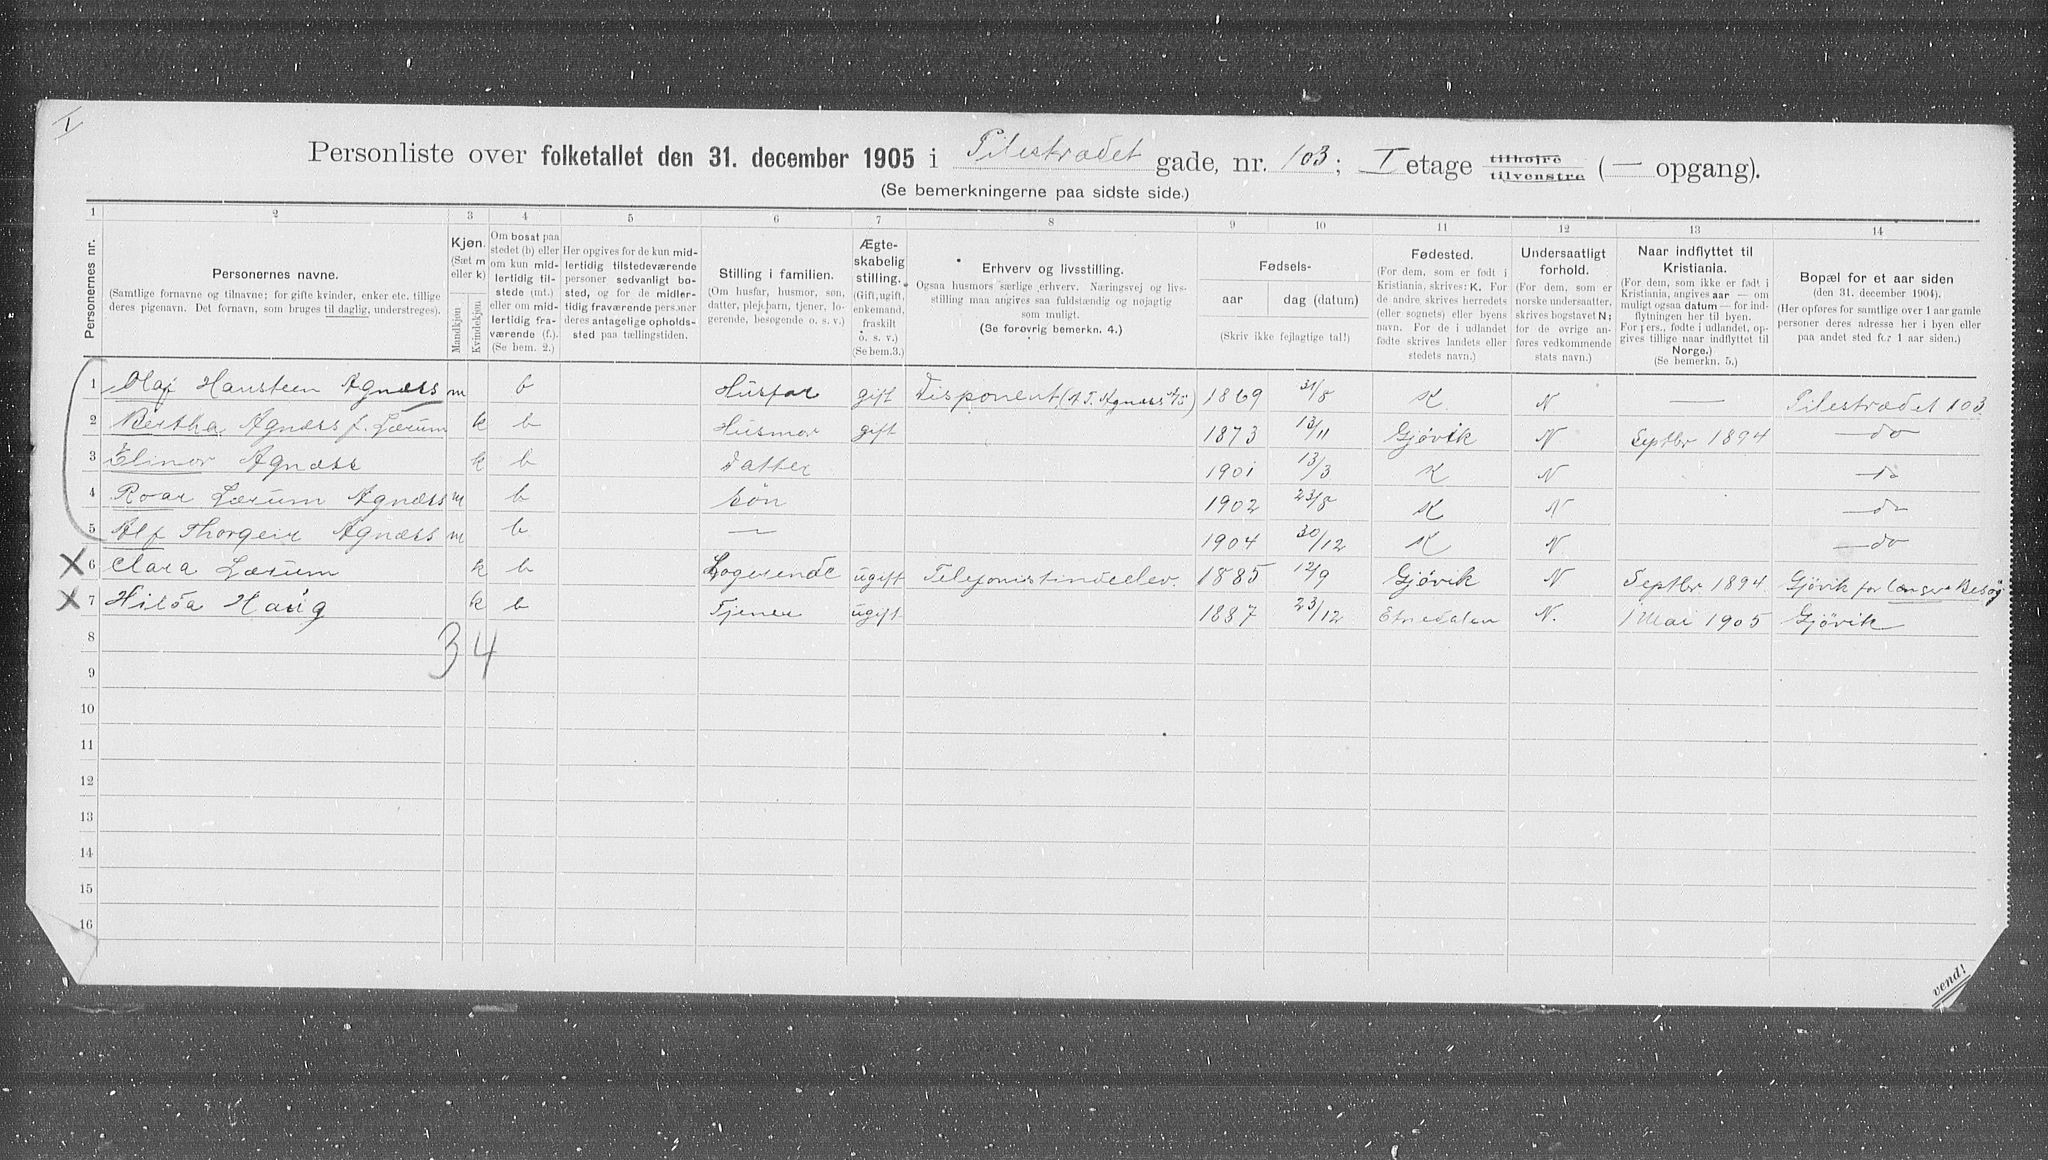 I
Personliste over folketallet den 31. december 1905 i Pilestrædet gade, nr. 103; I etage tilhøjre tilvenstre (— opgang).
(Se bemerkningerne paa sidste side.)
1 2 3 4 5 6 7 8 9 10 11 12 13 14
Personernes nr.
Personernes navne.
(Samtlige fornavne og tilnavne; for gifte kvinder, enker etc. tillige
deres pigenavn. Det fornavn, som bruges til daglig, understreges).
Kjøn.
(Sæt m
eller k)
Mandkjøn
Kvindekjøn
Om bosat paa
stedet (b) eller
om kun mid-
lertidig til-
stede (mt.)
eller om mid-
lertidig fra-
værende (f.).
(Se bem. 2.)
Her opgives for de kun mid-
lertidig tilstedeværende
personer sedvanlig bo-
sted, og for de midler-
tidig fraværende personer
deres antagelige opholds-
sted paa tællingstiden.
Stilling i familien.
(Om husfar, husmor, søn,
datter, plejebarn, tjener, lo-
gerende, besøgende o. s. v.)
Ægte-
skabelig
stilling.
(Gift, ugift,
enkemand,
fraskilt
o. s. v.)
(Se bem.3.)
Erhverv og livsstilling.
Ogsaa husmors særlige erhverv. Næringsvej og livs-
stilling maa angives saa fuldstændig og nøjagtig
som muligt.
(Se forøvrig bemerkn. 4.)
Fødsels-
aar
dag (datum)
(Skriv ikke fejlagtige tal!)
Fødested.
(For dem, som er født i
Kristiania, skrives: K. For
de andre skrives herredets
(eller sognets) eller byens
navn. For de i udlandet
fødte skrives landets eller
stedets navn.)
Undersaatligt
forhold.
(For dem, som er
norske undersaatter,
skrives bogstavet N;
for de øvrige an-
føres vedkommende
stats navn.)
Naar indflyttet til
Kristiania.
(For dem, som ikke er født i
Kristiania, angives aar — om
muligt ogsaa datum — for ind-
flytningen her til byen.
For pers., fødte i udlandet, op-
gives tillige naar indflyttet til
Norge.)
(Se bemerkn. 5.)
Bopæl for et aar siden
(den 31. december 1904).
(Her opføres for samtlige over 1 aar gamle
personer deres adresse her i byen eller
paa andet sted for 1 aar siden.)
1 Olaf Hansteen Agnæss m b Husfar gift Disponent (A T. Agness A/S) 1869 31/8 K N — Pilestrædet 103
2 Bertha Agnæss f. Lærum k b Husmor gift 1873 13/11 Gjøvik N Septbr 1894 — do
3 Elinor Agnæss k b Datter 1901 13/3 K N do
4 Roar Lærum Agnæss m b Søn 1902 23/8 K N — do
5 Alf Thorgeir Agnæss m b — 1904 30/12 K N — do
X 6 Clara Lærum k b Logerende ugift Telefonistindeelev. 1885 12/9 Gjøvik N Septbr 1894. Gjøvik for længere Besøg
X 7 Hilda Haug k b Tjener ugift 1887 23/12 Etnedalen N. 1 Mai 1905 Gjøvik
8
34
9
10
11
12
13
14
15
16
vend!